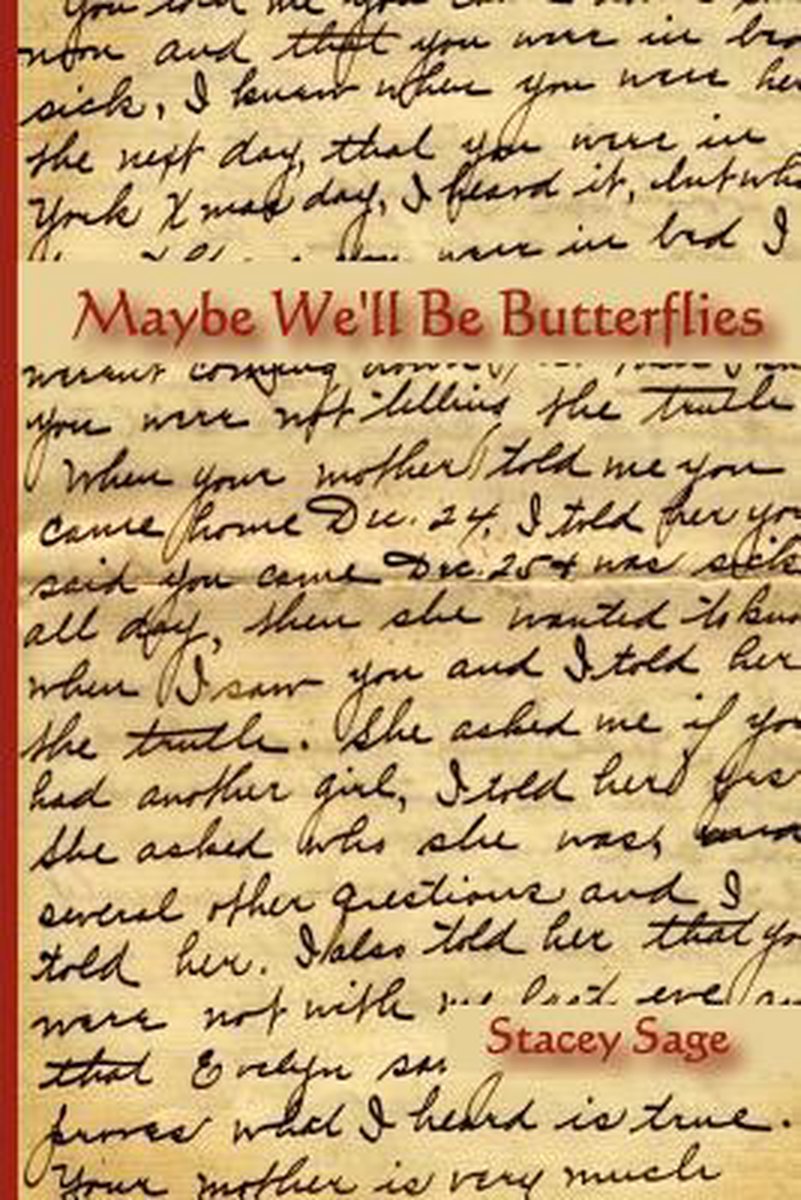 noon and that you were in
sick, I knew when you were
the next day, that you were in
York Xmas day, I heard it, but
were in bed I
Maybe We'll Be Butterflies
weren't coming down
you were not telling the truth
When your mother told me you
came home Dec. 24, I told her you
said you came Dec. 25 & was sick
all day, then she wanted to know
when I saw you and I told her
the truth. She asked me if you
had another girl, I told her yes
She asked who she was,
several other questions and I
told her. I also told her that you
were not with me last eve
Stacey Sage
that Evelyn
proves what I heard is true.
Your mother is very much